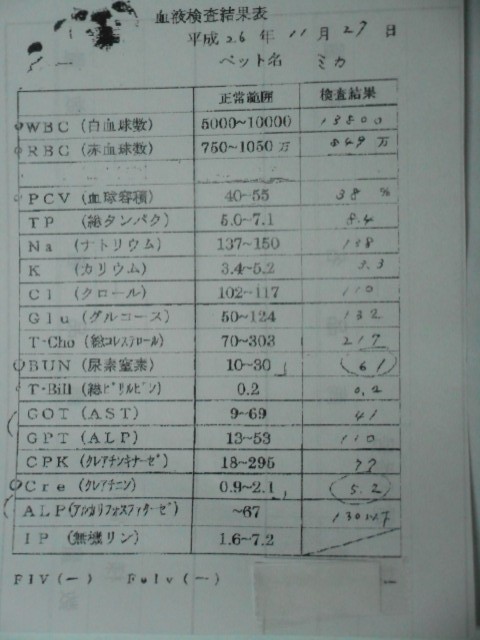 血液検査結果表
平成26年 11月27日
ペット名 ミカ
正常範囲 検査結果
WBC (白血球数) 5000~10000 13800
RBC (赤血球数) 750~1050万 849万
PCV (血球容積) 40~55 38 %
TP (総タンパク) 5.0~7.1 8.4
Na (ナトリウム) 137~150 138
K (カリウム) 3.4~5.2 3.3
Cl (クロール) 102~117 110
Glu (グルコース) 50~124 132
T-Cho (総コレステロール) 70~303 217
BUN (尿素窒素) 10~30 61
T-Bill (総ビリルビン) 0.2 0.2
GOT (AST) 9~69 41
GPT (ALP) 13~53 110
CPK (クレアチンキナーゼ) 18~295
Cre (クレアチニン) 0.9~2.1 5.2
ALP (アルカリフォスファターゼ) ~67
IP (無機リン) 1.6~7.2
FIV (一) Felv (一)